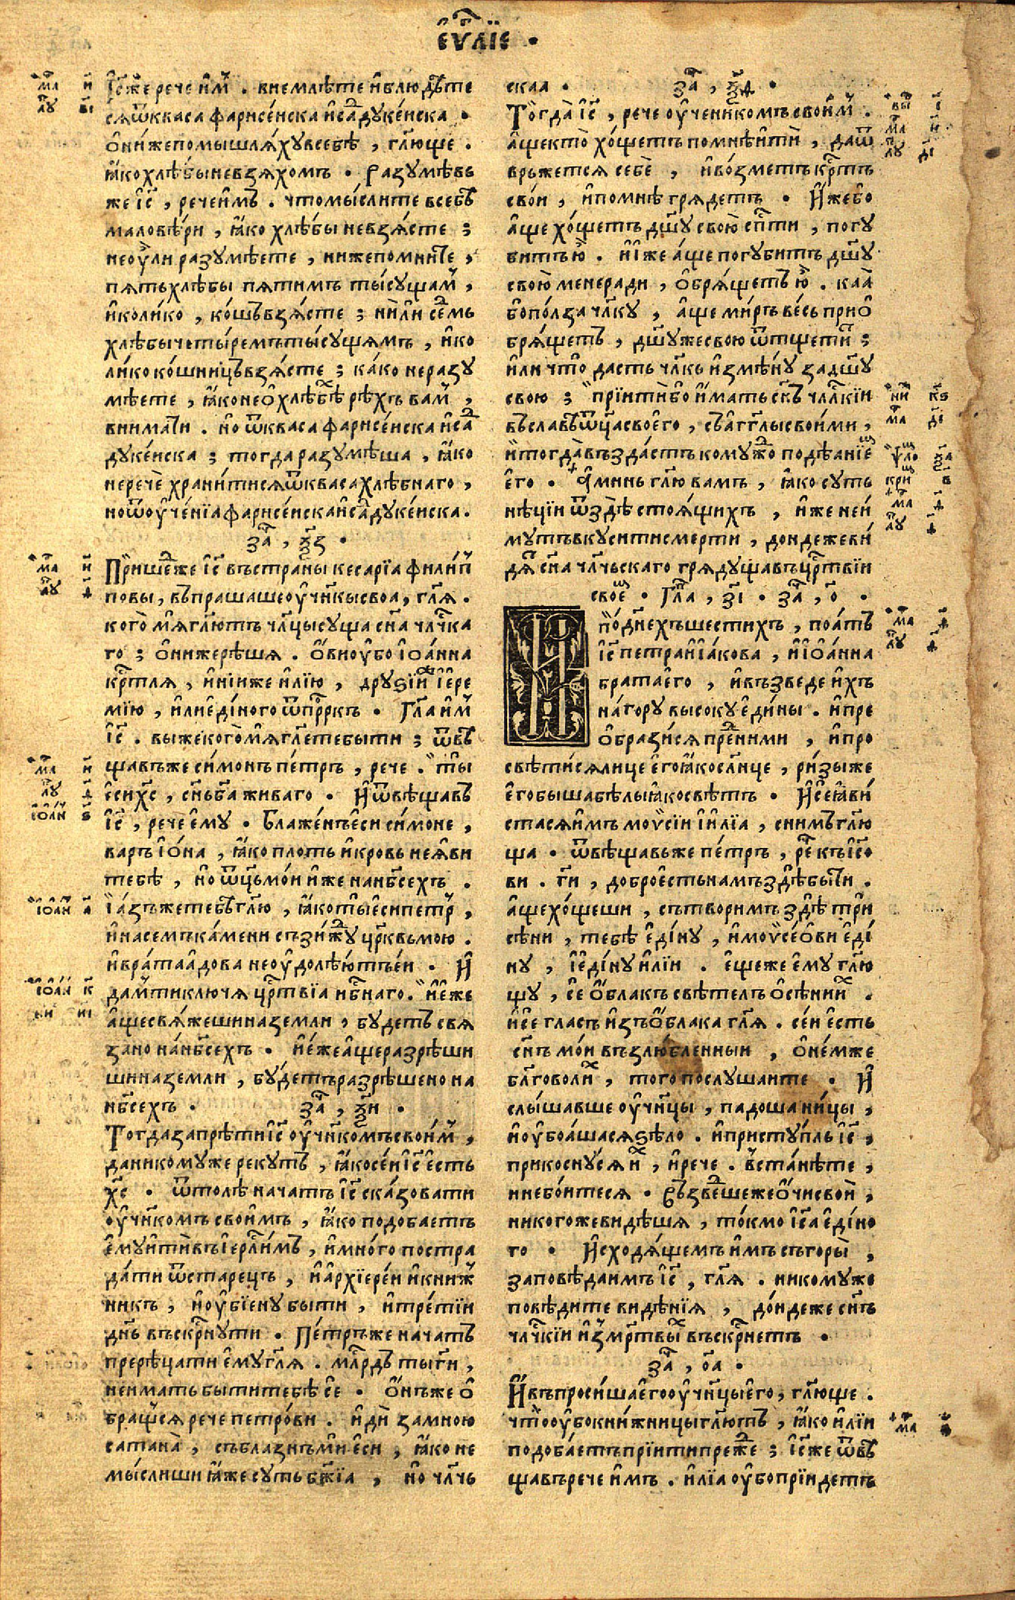 еѵⷢ҇лїе .
І҆с҃же рече и҆мⷨ . внемлѣте и҆блюдѣте
сѧѿкваса фарисе́иска и҆саⷣдуке́иска .
Ѻ҆ниже помышлѧхувсебѣ , гл҃юще .
ꙗ҆ко хлѣбы невзѧхомъ . Разумѣвь
же і҆с҃ , речеи҆мъ . что мы́слите всебѣ
маловѣри , ꙗ҆ко хлѣбы невзѧ́сте ;
неоу҆ли разумѣете , ниже помните ,
пѧть хлѣбы пѧтимъ ты́сущамⷨ ,
и҆коли́ко , ко́шь взѧ́сте ; нили се́мь
хлѣбы четы́ремъ ты́сущѧмъ , и҆ко
ли́ко ко́шницъ взѧ́сте ; ка́ко неразу
мѣете , ꙗ҆ко не о҆ хлѣбѣⷯ рѣхъ вамⷨ ,
внимати . но ѿкваса фарисе́иска и҆саⷣ
дуке́иска ; тогда разумѣша , ꙗ҆ко
не рече храни́тисѧ ѿкваса хлѣбнаго ,
но ѿ оу҆че́нїа фарисе́иска и҆саⷣдуке́иска .
заⷱ , ѯ҃з .
Прише́дже і҆с҃ въстраны кесарїа фили́пⷫ
повы , въпрашаше оу҆чн҃кы своа , гл҃ѧ .
кого́ мѧ гл҃ютъ чл҃цы суща сн҃а чл҃чка
го ; Ѻ҆ниже рѣшѧ . Ѻ҆ви оу҆бо і҆ѡанна
крⷭ҇тлѧ , и҆нїи же и҆лїю , друѕїиⷤ і҆ере
мїю , и҆ли е҆ди́ного ѿпрⷪ҇ркъ . Гл҃а и҆мⷨ
і҆с҃ . вы же кого́ мѧ гл҃ете бы́ти ; ѿвѣ
щавъ же симонъ пе́тръ , рече . ты
е҆си хс҃ , сн҃ъ бг҃а жива́го . И҆ ѿвѣщавъ
і҆с҃ , рече е҆му . Блаже́нъ е҆си си́моне ,
варъ і҆ѡ́на , ꙗ҆ко плоть и҆ кровь не ꙗ҆ви
тебѣ , но ѿц҃ь мо́и и҆же на нб҃сехъ .
І҆ азъ же тебѣ гл҃ю , ꙗ҆ко ты е҆си петрⷬ ,
и҆ на семъ ка́мени съзи́жⷣу цр҃кьвь мою .
и҆ врата а҆дова не оу҆долѣ́ютъ е́и . И҆
дамⷨ ти ключѧ црⷭ҇твїа нбⷭ҇наго . И҆ е҆же
а҆ще свѧжеши на земли , бу́деть свѧ
зано на нб҃сехъ . и҆ е́же а҆ще разрѣши
ши на земли , бу́детъ разрѣшено на
нб҃сехъ . заⷱ , ѯ҃и .
Тогда запрѣти і҆с҃ оу҆чн҃комъ свои́мⷨ ,
да никому же реку́ть , ꙗ҆ко се́и і҆с҃ е҆сть
хс҃ . ѿто́лѣ начатъ і҆с҃ ска́зовати
оу҆чн҃комъ свои́мъ , ꙗ҆ко подобаетъ
е҆му и҆ти въ і҆ерⷭ҇лимъ , и҆ мно́го постра
да́ти ѿ старець , и҆ а҆рхїере́и и҆ кни́жⷤ
никъ , и҆ оу҆бїену бы́ти , и҆ тре́тїи
дн҃ь въскрⷭ҇нути . Пе́тръ же начатъ
пререцати е҆му гл҃ѧ . млⷭ҇рдъ ты г҃и ,
не и́мать бы́ти тебѣ се́ . Ѻ҆нъ же о҆
бращьсѧ рече петро́ви . и҆ди́ за мною
сатана̀ , съблазнъ мѝ е҆си , ꙗ҆ко не
мы́слиши ꙗ҆же су́ть бж҃їа , но чл҃чь
скаа . заⷱ , ѯ҃д .
Тогда̀ і҆с҃ , рече оу҆чени́комъ свои́мⷨ .
а҆ще кто̀ хо́щетъ по мнѣ и҆ти̂ , да ѿ
връжетсѧ себѐ , и҆ во́зметъ крⷭ҇тъ
свои , и҆ по мнѣ грѧдеть . И҆же бо
а҆ще хо́щетъ дш҃у свою̀ спⷭ҇ти , погу
витъ ю̀ . и҆же а҆ще погубитъ дш҃у
свою̀ мене ради , ѻ҆брѧ́щетъ ю̀ . каа̀
бо по́лза чл҃ку , а҆ще ми́ръ ве́сь прио
брѧщетъ , дш҃у же свою ѿтщети́тⷮ ;
и҆ли что̀ дасть чл҃къ и҆змѣ́ну за дш҃у
свою ; прїити бо и҆мать сн҃ъ чл҃чкїи
въ славѣ ѿц҃а своего , съ а҆гг҃лы свои́ми ,
и҆ тогда въздастъ комужⷣо по дѣанїе
е҆го . А҆минь гл҃ю вамъ , ꙗ҆ко суть
нѣцїи ѿ здѣ стоѧ́щихъ , и҆же неи
мутъ вкуси́ти сме́рти , до́ндеже ви
дѧтⷮ сн҃а чл҃чьскаго грѧду́ща въ црⷭ҇твїи
свое . Гл҃а , з҃і . заⷱ , о҃ .
По дне́хъ шестихъ , поатъ
і҆с҃ петра и҆ і҆а́кова , и҆ і҆ѡ́анна
брата е҆го , и҆ възведе и҆хъ
на́ гору высоку е҆ди́ны . и҆ пре
ѻ҆брази́сѧ преⷣ ни́ми , и҆ про
свѣтисѧ лице е҆го ꙗ҆ко слн҃це , ри́зы же
е҆го быша бѣлы ꙗ҆ко свѣтъ . И҆ се ꙗ҆ви
стасѧ и҆мъ мои҆си́и и҆ и҆лїа , с ни́мъ гл҃ю
ща . ѿвѣщавь же пе́тръ , реⷱ къ і҆с҃о
ви . г҃и , добро е҆сть намъ здѣ́ бы́ти .
а҆ще хо́щеши , сътворимъ здѣ̀ три̂
сѣни , тебѣ е҆ди́ну , и҆ моѵ҆се́ѻви е҆ди́
ну , і҆ е҆ди́ну и҆лїи . е҆ще же е҆му гл҃ю
щу , се ѻ҆́блакъ свѣтелъ ѻ҆сѣни и́ⷯ .
и҆ се гласъ и҆зъ ѻ҆́блака гл҃ѧ . се́и е҆сть
сн҃ъ мо́и възлю́бленныи , ѻ҆ не́мже
бл҃говоли́хⷯ , того послу́шаите . И҆
слы́шавше оу҆чн҃цы , падоша ни́цы ,
и҆ оу҆боа́шасѧ ѕѣло . и҆ присту́пль і҆с҃ ,
прикосну́сѧ иⷯ , и҆ рече . въста́нѣте ,
и не бо́итесѧ . Възве́дшеже ѻ҆́чи своѝ ,
никого же ви́дѣшѧ , то́кмо і҆с҃а е҆ди́но
го . И҆ сходѧ́щемъ и҆мъ съ горы̀ ,
заповѣда имъ і҆с҃ , гл҃ѧ . нико́муже
повѣ́дите видѣ́нїѧ , до́ндеже сн҃ъ
чл҃чкїи и҆з мрⷭ҇твыⷯ въскрⷭ҇нетъ .
заⷱ , о҃а .
И҆ въпроси́ша е҆го оу҆чн҃цы е҆го , гл҃юще .
что̀ оу҆бо кни́жницы гл҃ютъ , ꙗ҆ко и҆лїи
подоба́етъ прїити преже ; І҆с҃ же ѿвѣ
щавъ рече и҆мъ . и҆лїа оу҆бо прїи́деть